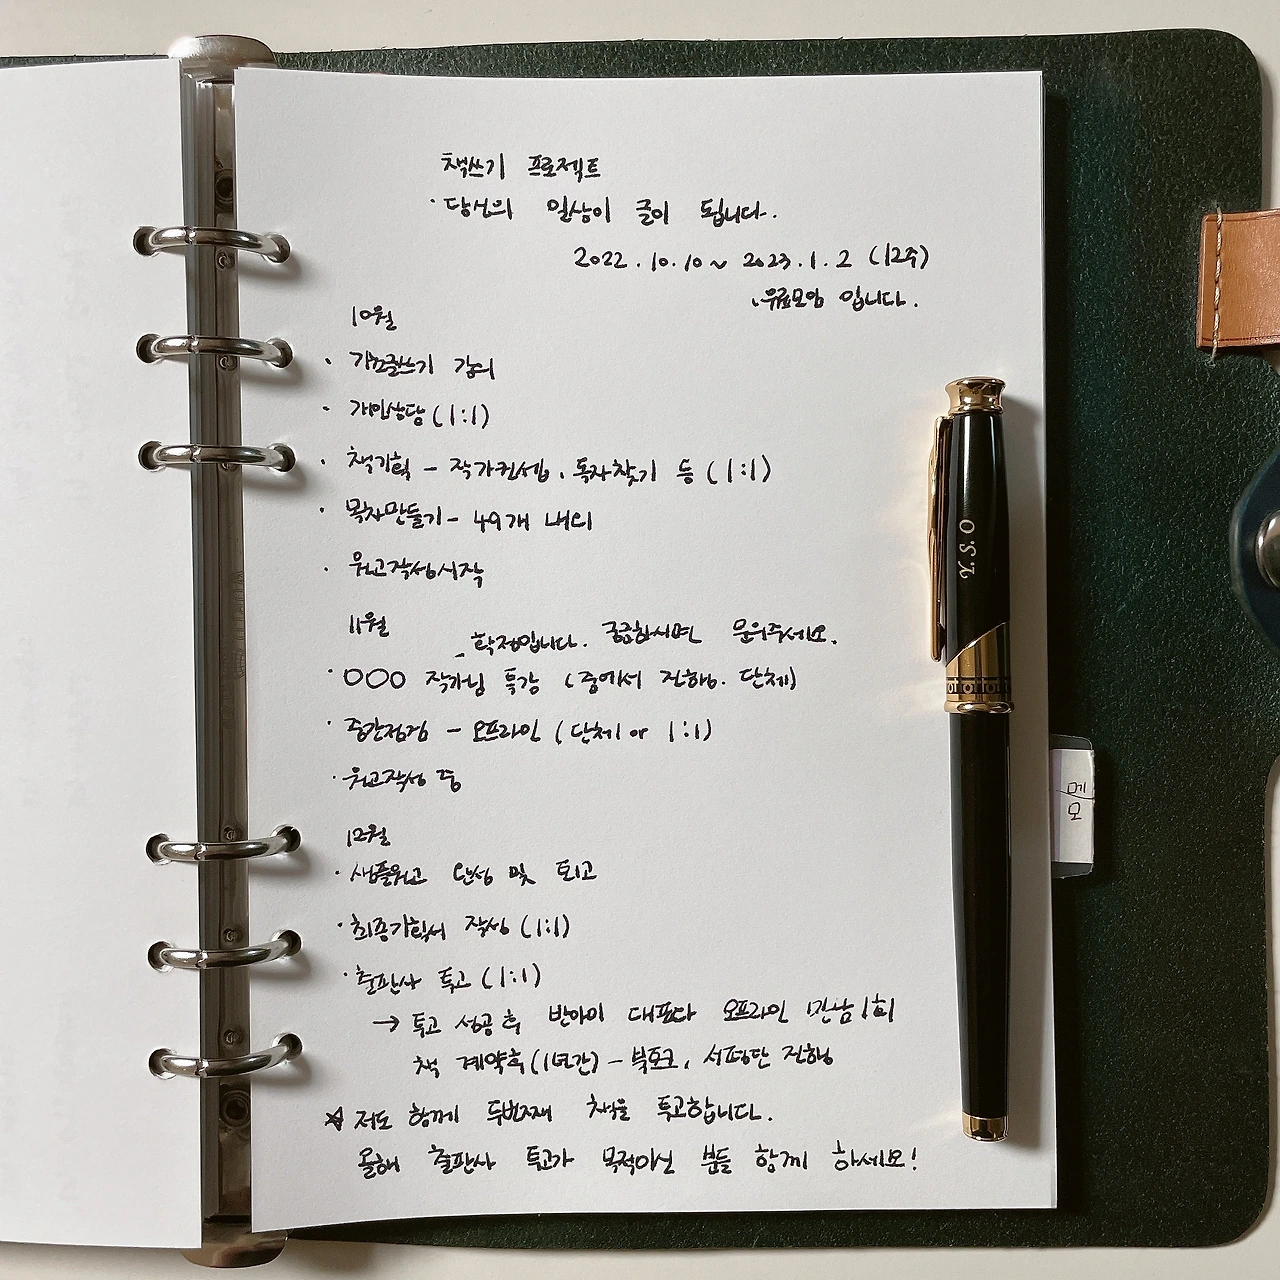 책쓰기 프로젝트
· 당신의 일상이 글이 됩니다.
2022.10.10~ 2023.1.2 (12주)
· 유료모임 입니다.
10월
· 기초글쓰기 강의
· 개인상담(1:1)
· 책기획 - 작가컨셉, 독자찾기 등 (1:1)
· 목차만들기 - 49개 내외
· 원고작성시작
11월
확정입니다. 궁금하시면 문의주세요.
· ○○○ 작가님 특강 (줌에서 진행. 단체)
· 중간점검 - 오프라인 (단체 or 1:1)
· 원고작성 중
12월
· 샘플원고 완성 및 퇴고
· 최종기획서 작성 (1:1)
· 출판사 투고 (1:1)
→ 투고 성공후 대표다 오프라인 만남 1회
책 계약후(1년간) - 북토크, 서평단 진행
☆ 저도 함께 두번째 책을 투고합니다.
올해 출판사 투고가 목적이신 분들 함께 하세요!
Y.S.O
메모